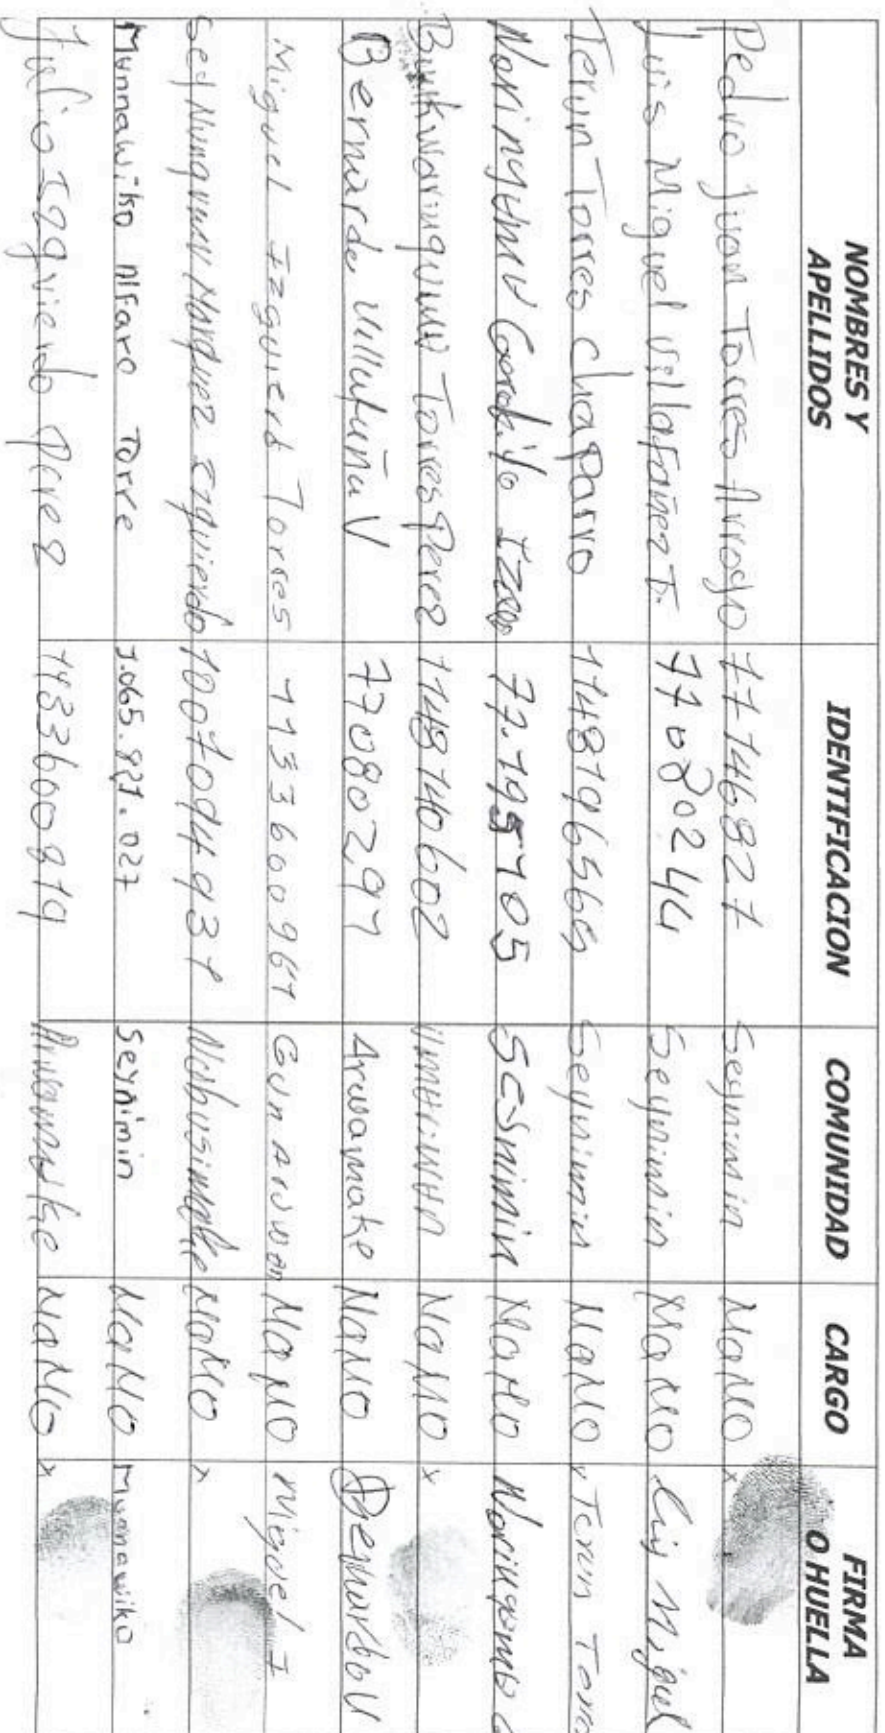 NOMBRES Y APELLIDOS IDENTIFICACION COMUNIDAD CARGO FIRMA O HUELLA
Pedro Juan Torres Arroyo 77146827 Seynimin MaMO x
Luis Miguel Villafañez T. 77080244 Seynimin MaMO Luis Miguel
Terun Torres chaparro 1148196569 Seynimin MaMO x Terun Torre
Noringumu 77.195705 SeSnimin MaMO
Torres Perez 1148140602 MaMO x
Bernardo Villafaña V 77080297 Arwamake MaMO Bernardo V
Miguel Izquierd Torres 1133600961 Gun Aruwan MaMO Miguel I
Sey Nungumu Marquez Izquierdo 1007094931 Nabusimake MaMO x
Munnawiko Alfaro Torre 1.065.821.027 Seynimin MaMO Munnawiko
Julio Izquierdo Perez 1133600819 MaMO x